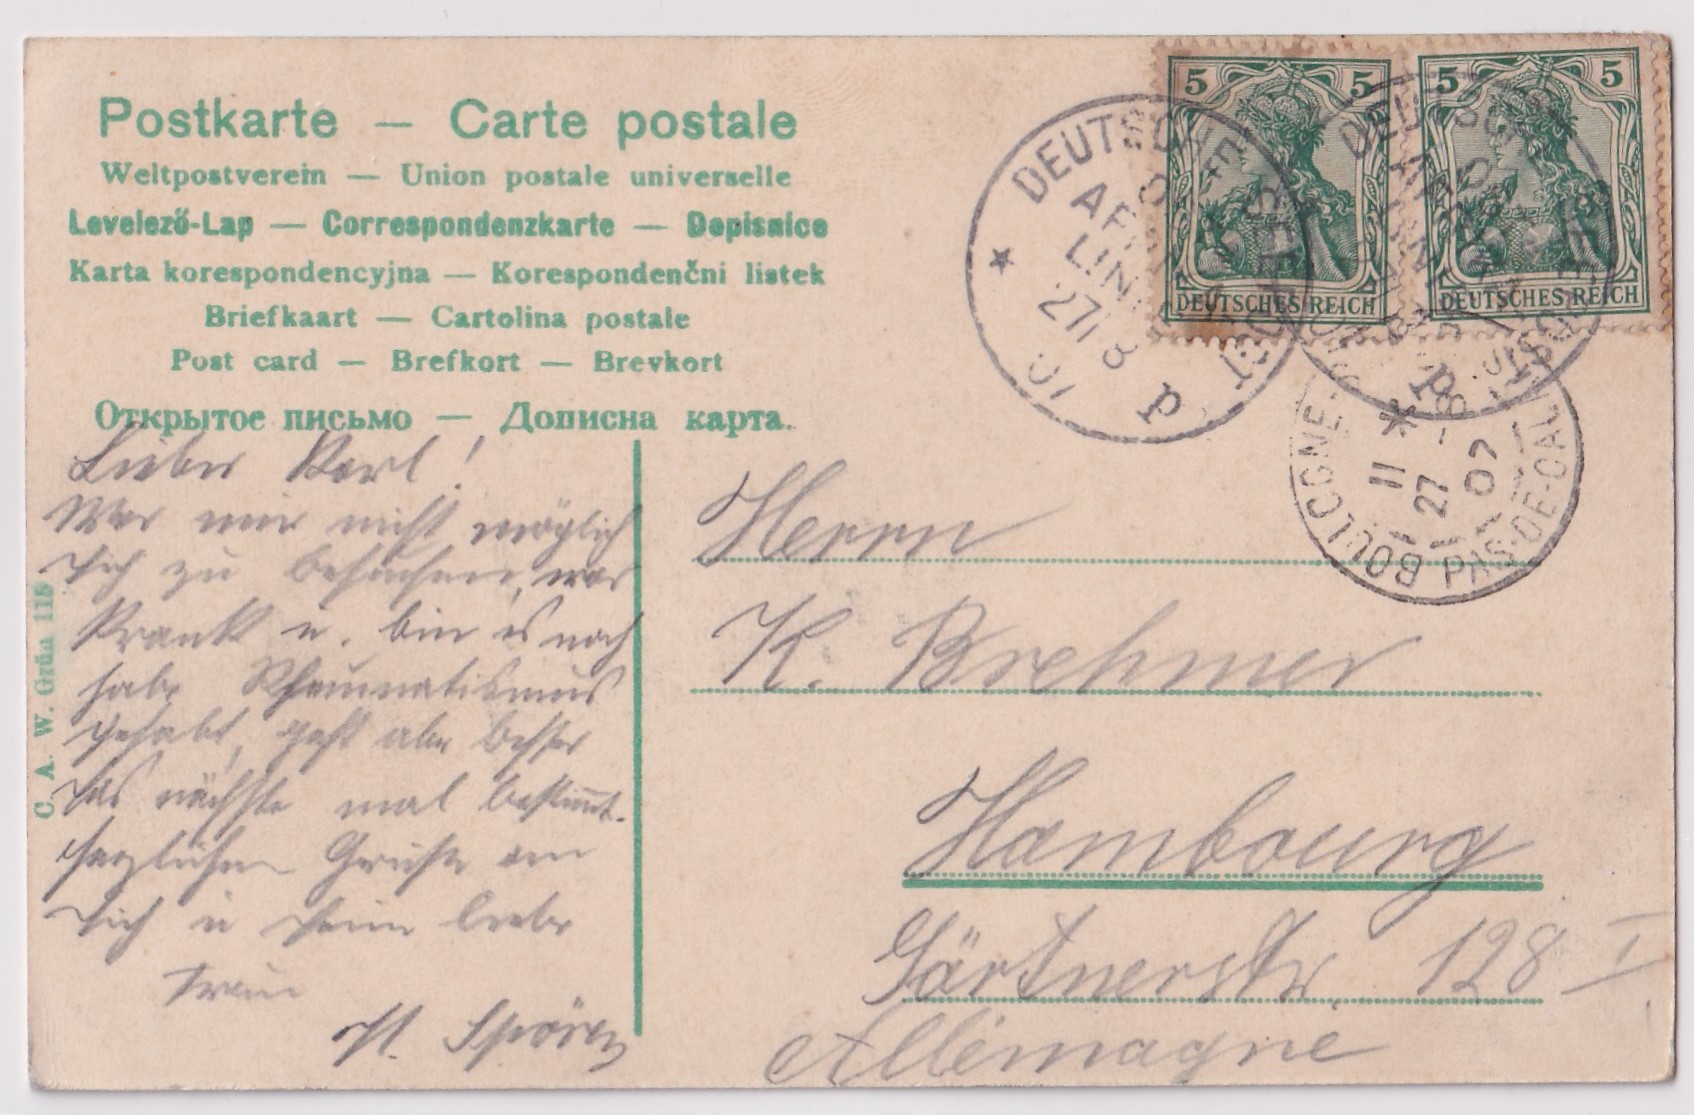 Postkarte — Carte postale
Weltpostverein — Union postale universelle
Levelező-Lap — Correspondenzkarte — Dopisnice
Karta korespondencyjna — Korespondenční listek
Briefkaart — Cartolina postale
Post card — Brefkort — Brevkort
Открытое письмо — Дописна карта.
C. A. W. Grün 118
Lieber Karl!
War mir nicht möglich
dich zu besuchen, war
Krank u. bin es noch
habe Rheumatismus
gehabt, geht aber besser
das nächste mal bestimmt.
herzlichen Grüße an
dich u deine liebe
Frau
H. Spören
5 5
DEUTSCHES REICH
5 5
DEUTSCHES REICH
DEUTSCHE SEEPOST
LINIE
27/8 07
p
BOULOGNE- PAS-DE-CALAIS
11
27 - 8
07
Herrn
K. Brehmer
Hambourg
Gärtnerstr. 128 I
Allemagne